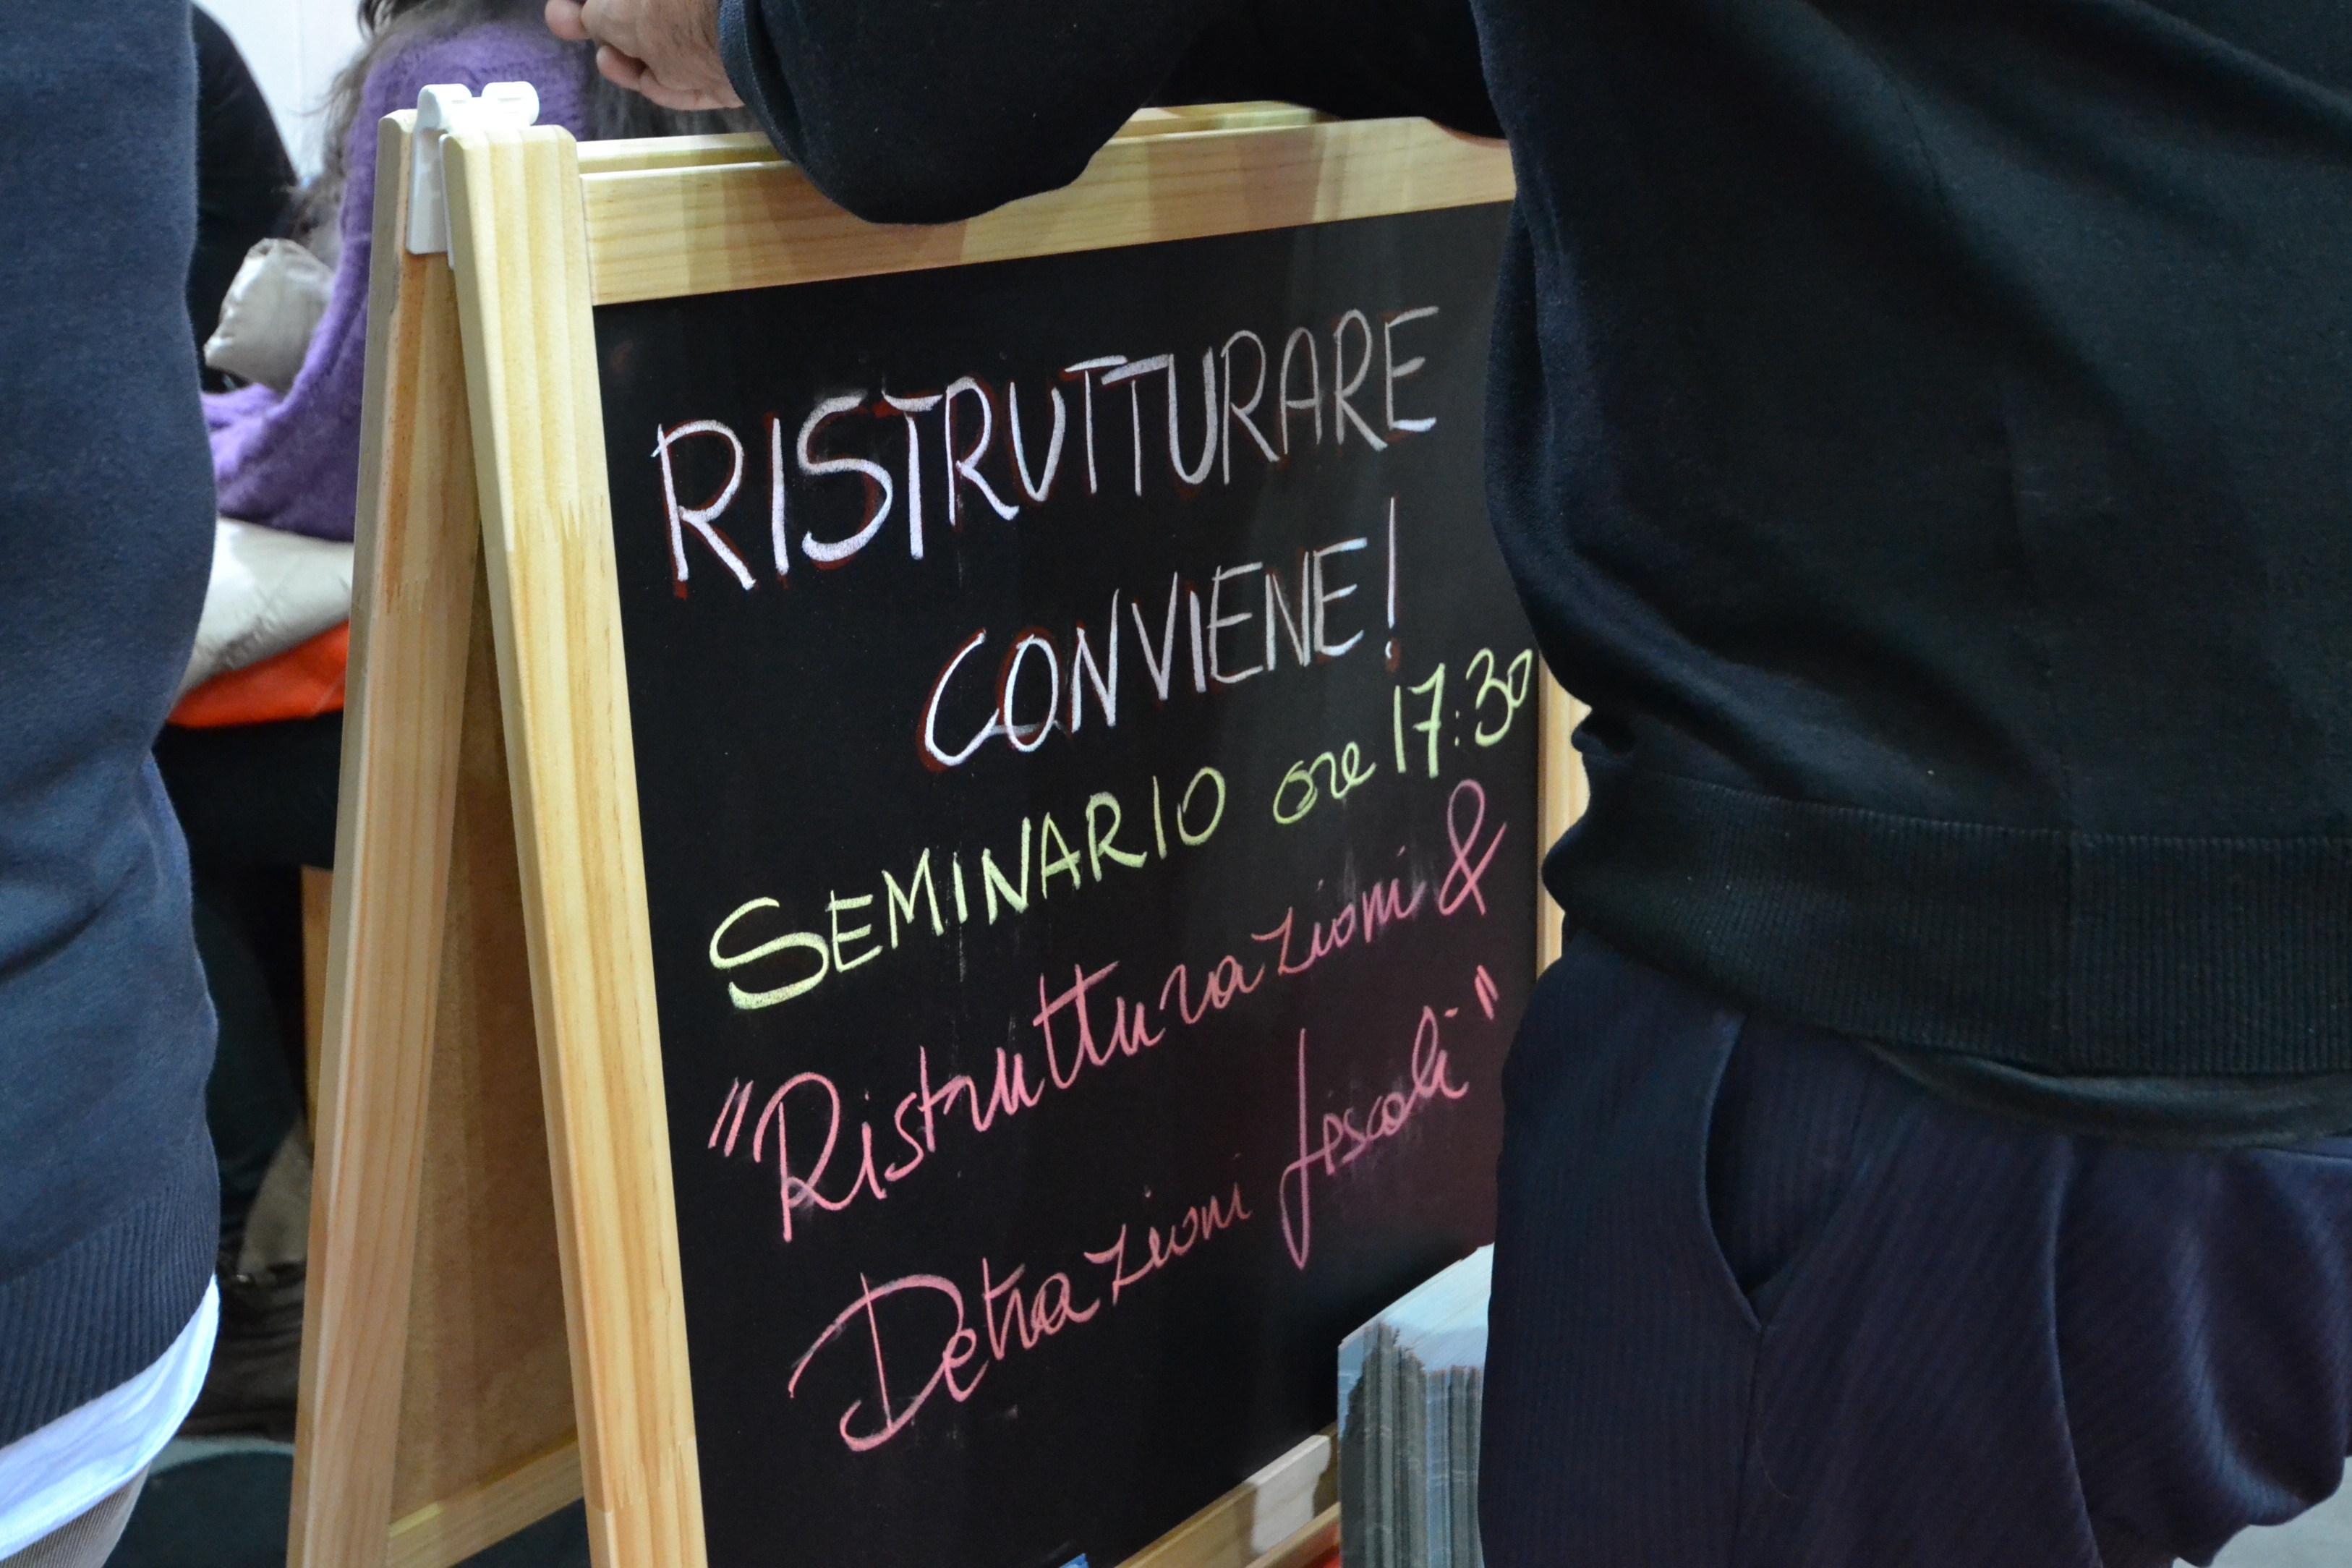 RISTRUTTURARE
CONVIENE!
SEMINARIO ore 17:30
"Ristrutturazioni &
Detrazioni fiscali"